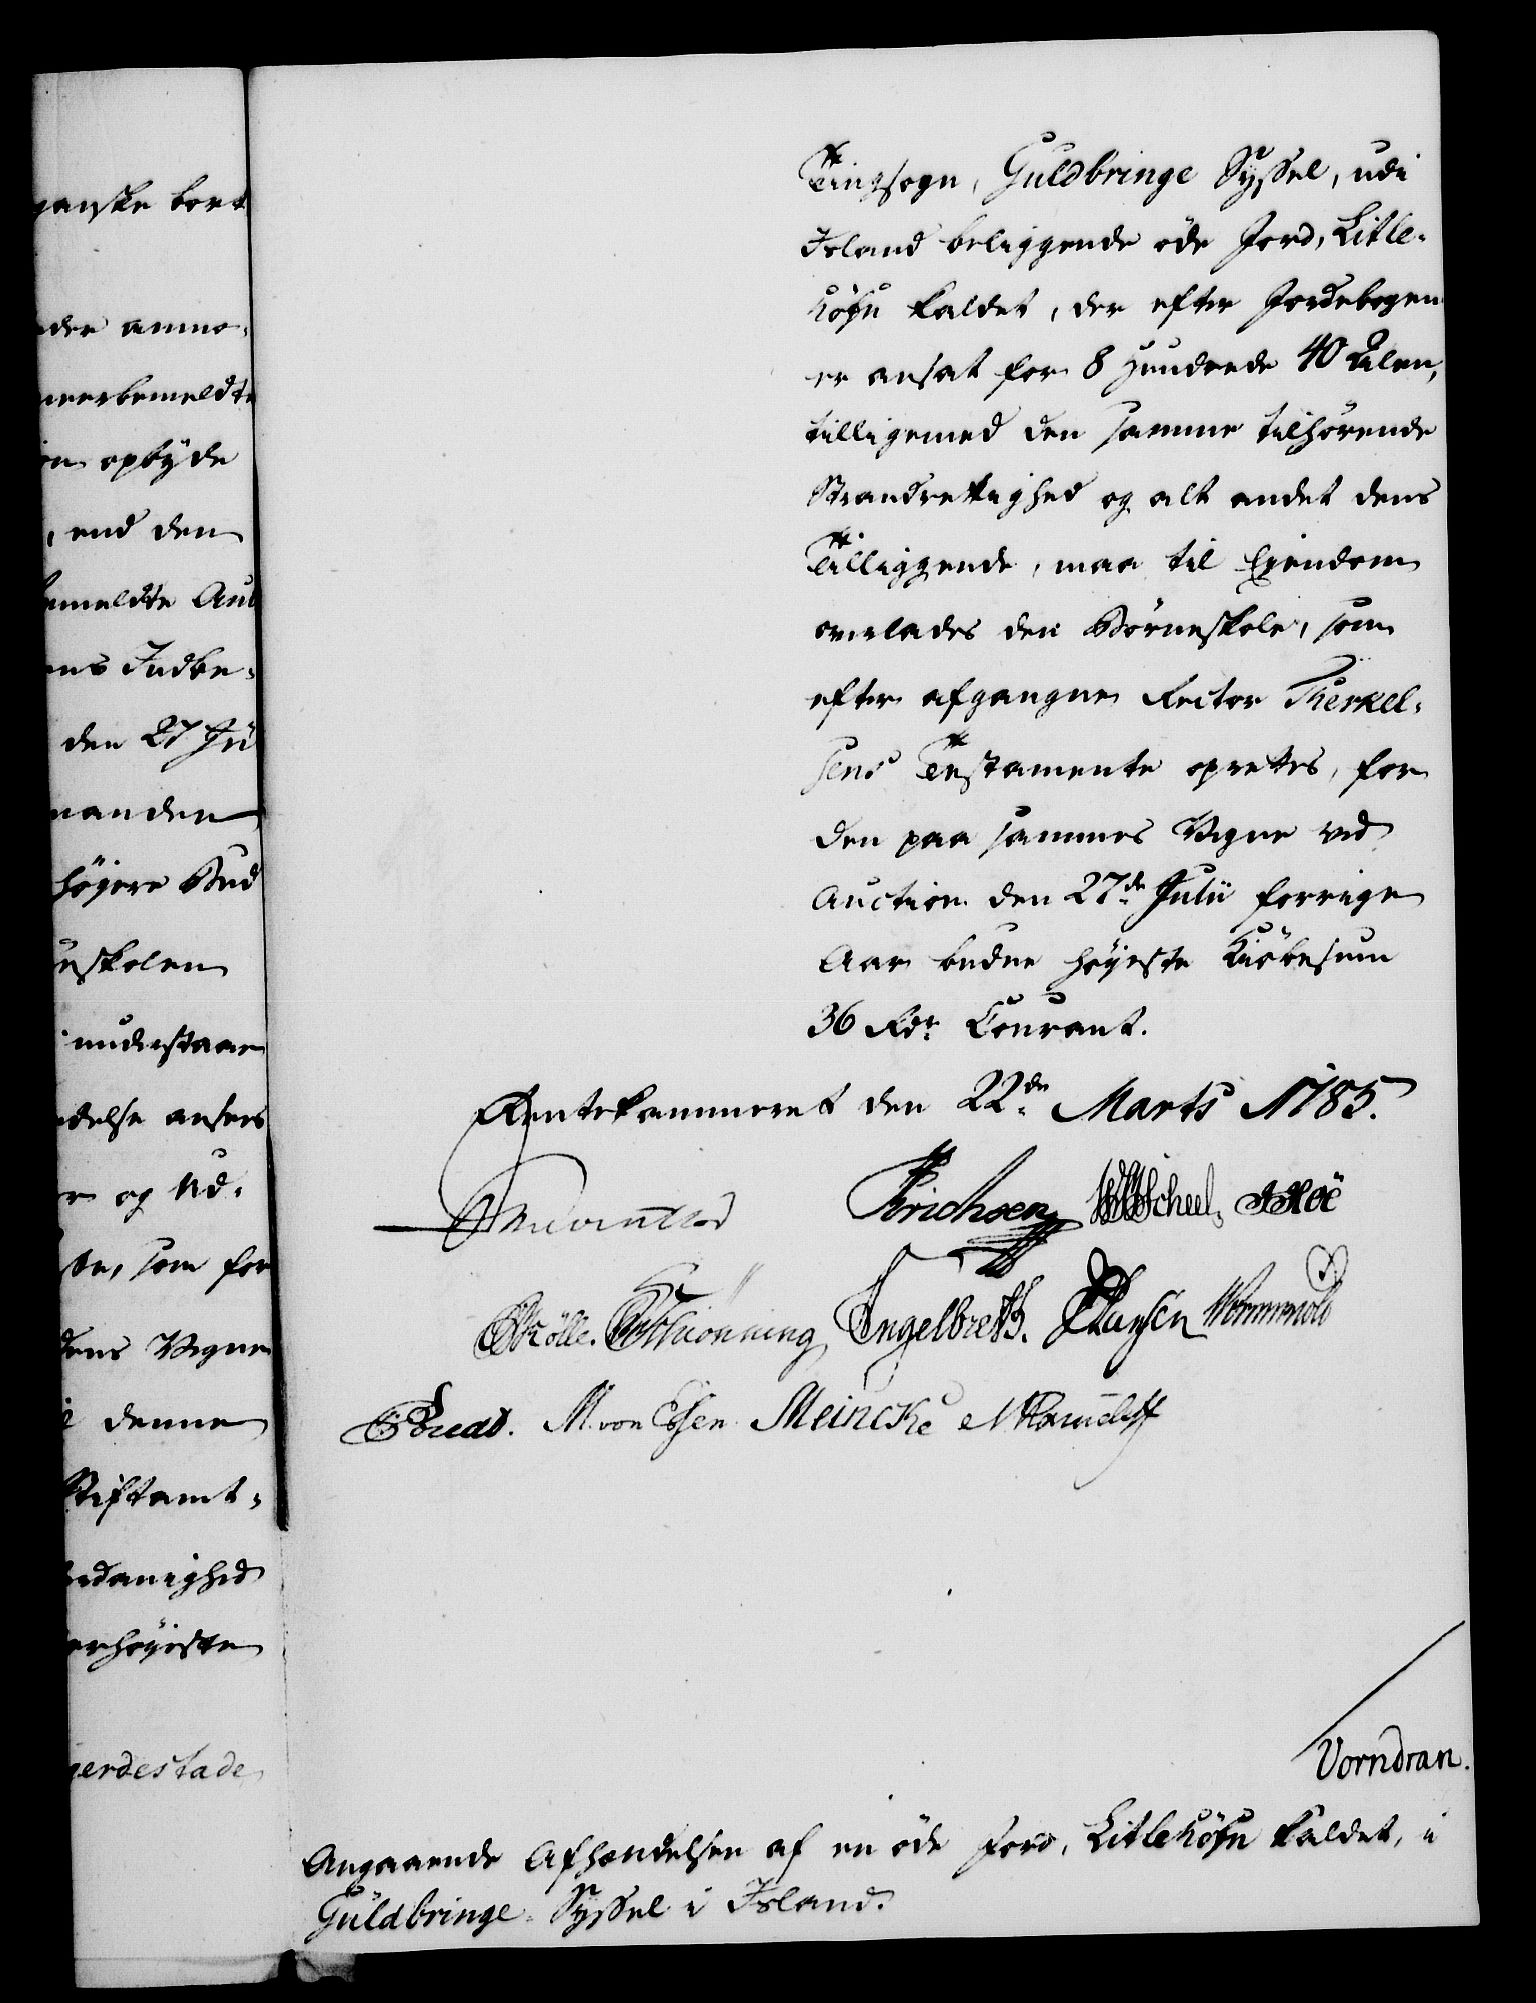 ganske bort
der anmo-
merbemeldte
opbyde
, end den
bemeldte Auc
ens Indbe-
den 27 Ju
manden
høyere Bud
neskolen
understaae
delse ansees
og Ud-
som for
dens Vegne
denne
Stiftamt-
danighed
erhøyeste
gerdestade
Tingsogn, Guldbringe Syssel, udi
Island beliggende øde Jord, Litle-
høfn kaldet, der efter Jordebogen
er ansat for 8 Hundrede 40 Alen,
tilligemed den samme tilhørende
Strandrettighed og alt andet dens
Tilliggende, maa til Eiendom
overlades den Børneskole, som
efter afgangne Rector Therkel-
sens Testamente oprettes, for
den paa sammes Vegne ved
Auction den 27de Julii forrige
Aar budne høyeste Kiøbesum
36 Rdr Courant.
Rentekammeret den 22de Marts 1785.
JErichsen WMScheel. Höe
Rölle. Thönning Engelbreth. Hansen Wormwold
Budt. M. von Essen Meincke
Vorndran.
Angaaende Afhændelsen af en øde Jord, Litlehøfn kaldet, i
Guldbringe-Syssel i Island.